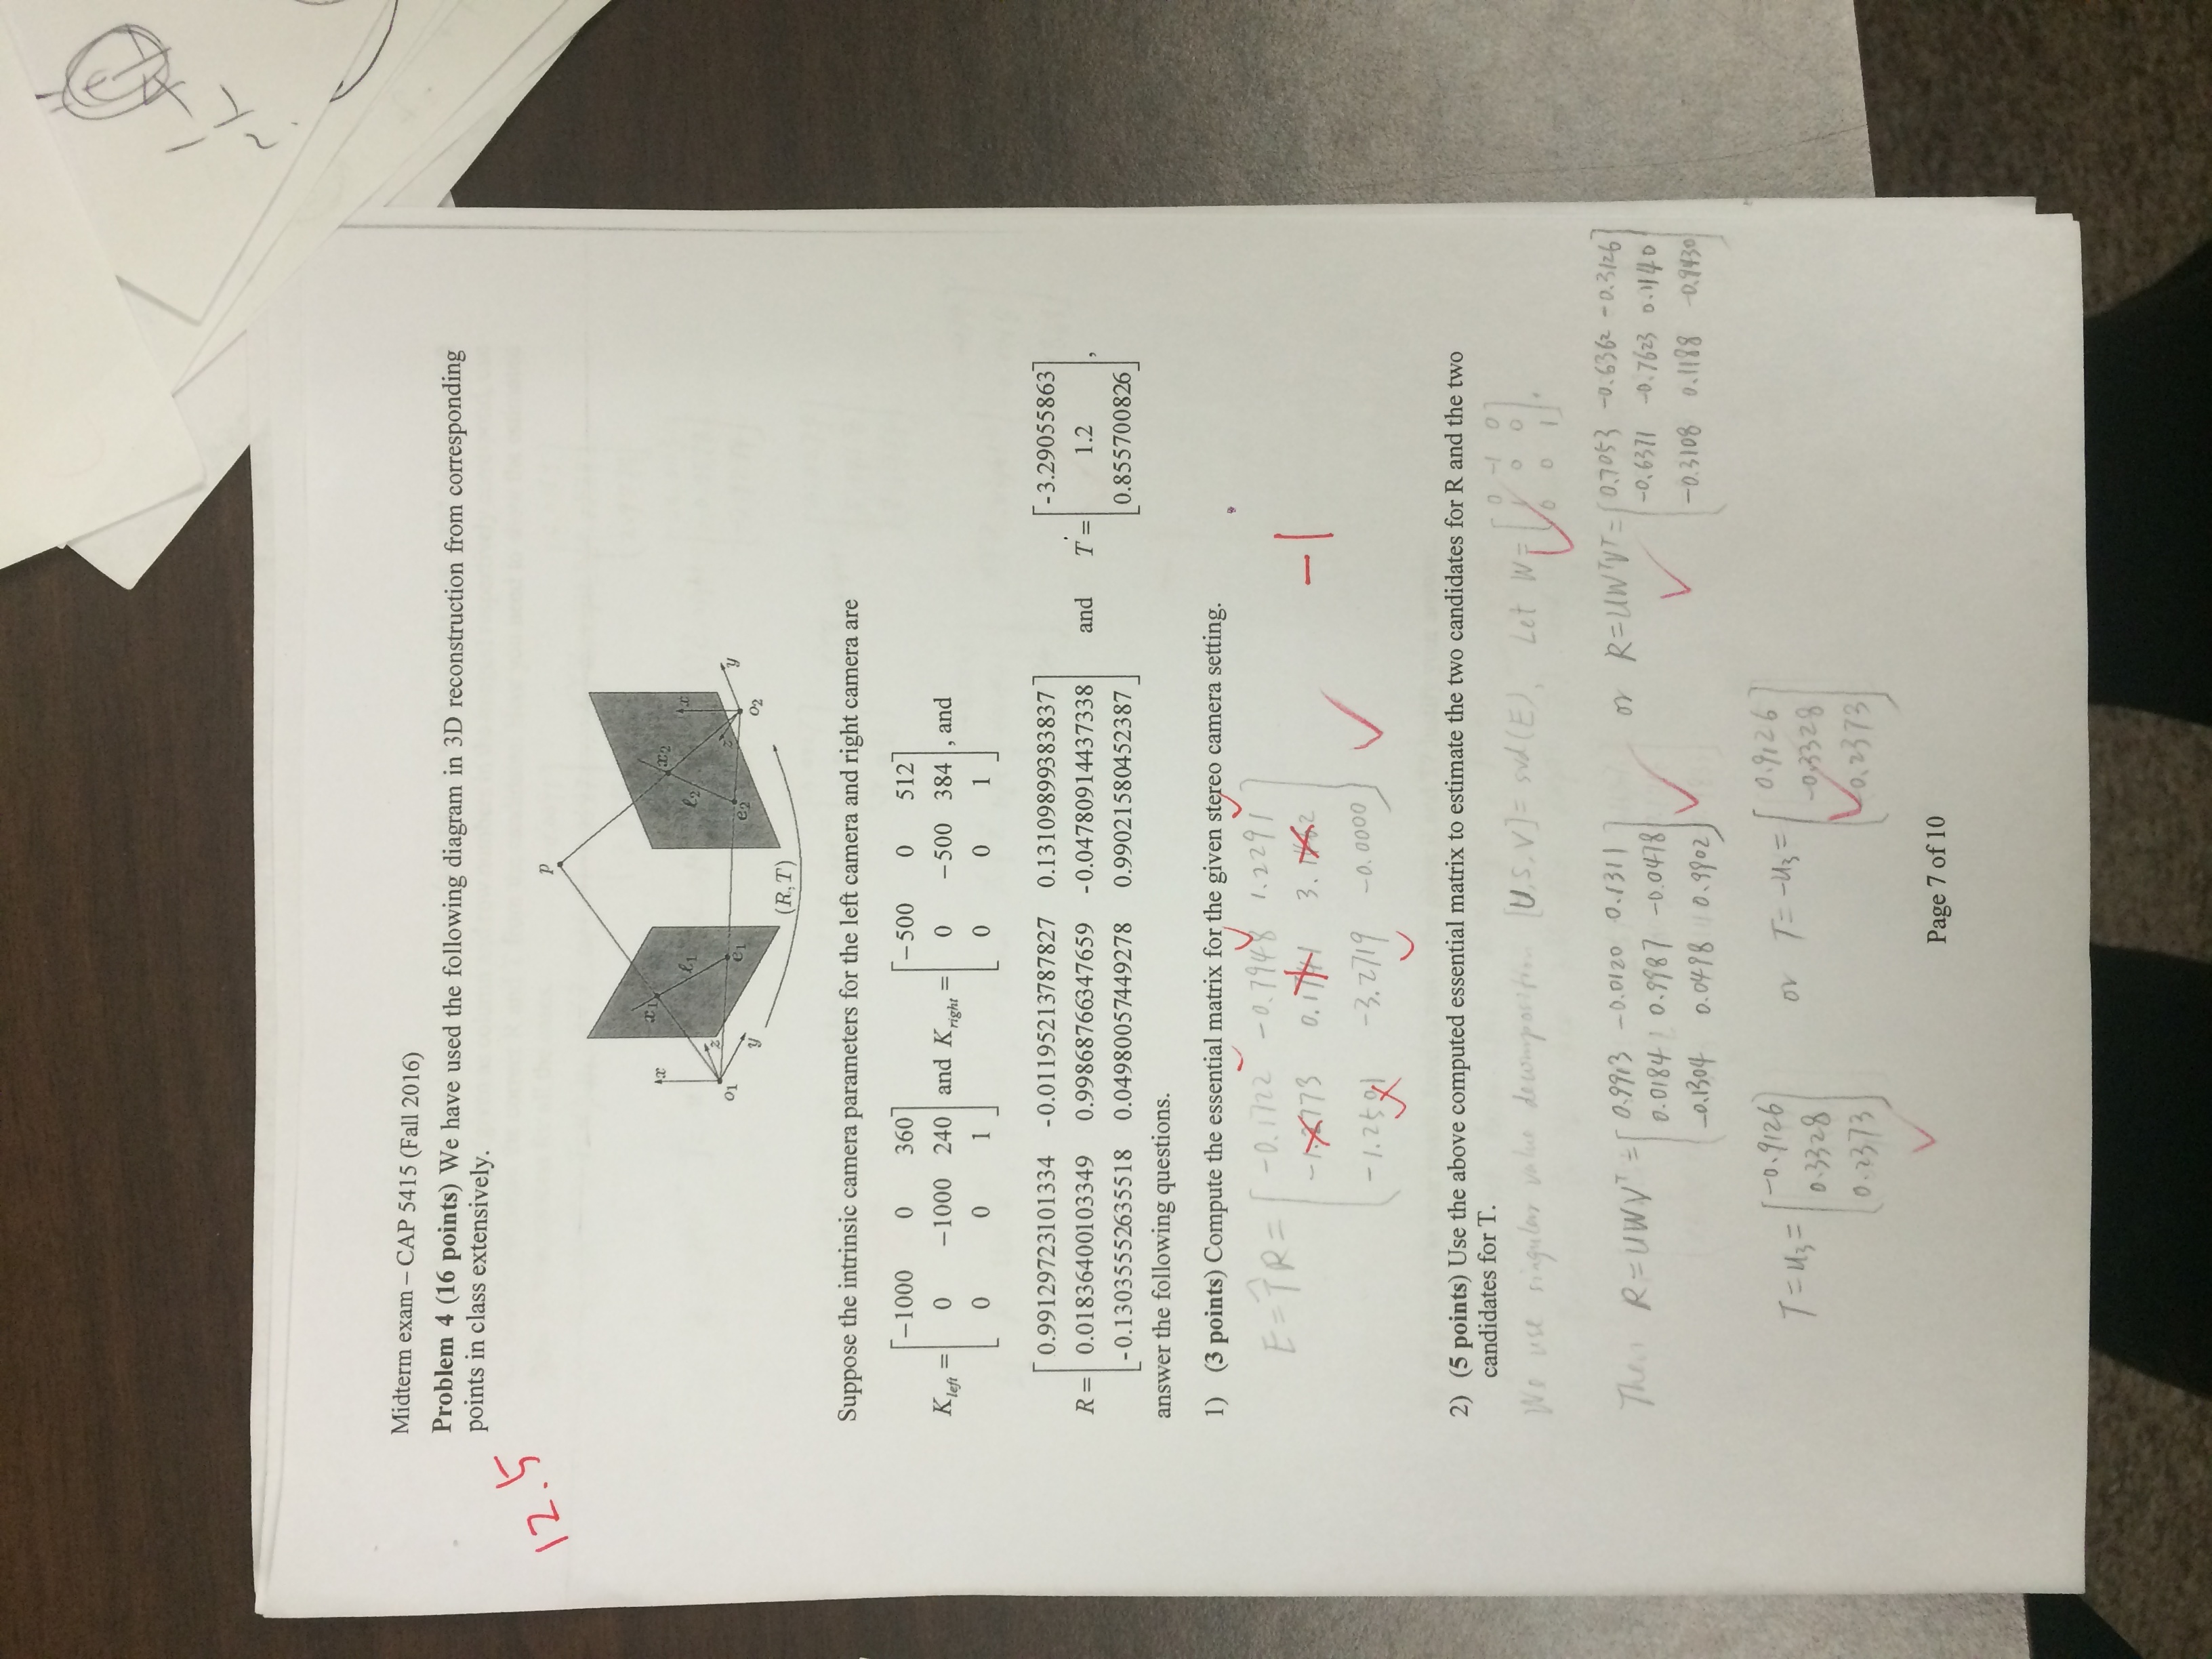 Midterm exam – CAP 5415 (Fall 2016)
Problem 4 (16 points) We have used the following diagram in 3D reconstruction from corresponding
points in class extensively.
12.5
p
x x₁ ℓ₁ e₁ z y o₁
ℓ₂ x₂ e₂ z x o₂ y
(R,T)
Suppose the intrinsic camera parameters for the left camera and right camera are
K_left = [-1000 0 360; 0 -1000 240; 0 0 1] and K_right = [-500 0 512; 0 -500 384; 0 0 1], and
R = [0.99129723101334 -0.0119521378787827 0.131098993983837; 0.0183640010103349 0.998687663476591 -0.0478091443733 8; -0.130355526355518 0.0498005744927 8 0.990215804523 87] and T' = [-3.29055863; 1.2; 0.8557008 26],
answer the following questions.
1) (3 points) Compute the essential matrix for the given stereo camera setting.
E = T̂R = [-0.1722 -0.7948 1.2291
3.
-3.2719 -0.0000]
-1
2) (5 points) Use the above computed essential matrix to estimate the two candidates for R and the two
candidates for T.
We use singular value decomposition [U,S,V]=svd(E), Let W = [0 -1 0; 1 0 0; 0 0 1].
Then R=UWVᵀ = [0.9913 -0.0120 0.1311; 0.0184 0.9987 -0.0478; -0.1304 0.0498 0.9902] or R=UWᵀVᵀ = [0.7053 -0.6362 -0.3126; -0.6371 -0.7623 0.1140; -0.3108 0.1188 -0.9430]
T=u₃= [-0.9126; 0.3328; 0.2373] or T=-u₃= [0.9126; -0.3328; -0.2373]
Page 7 of 10